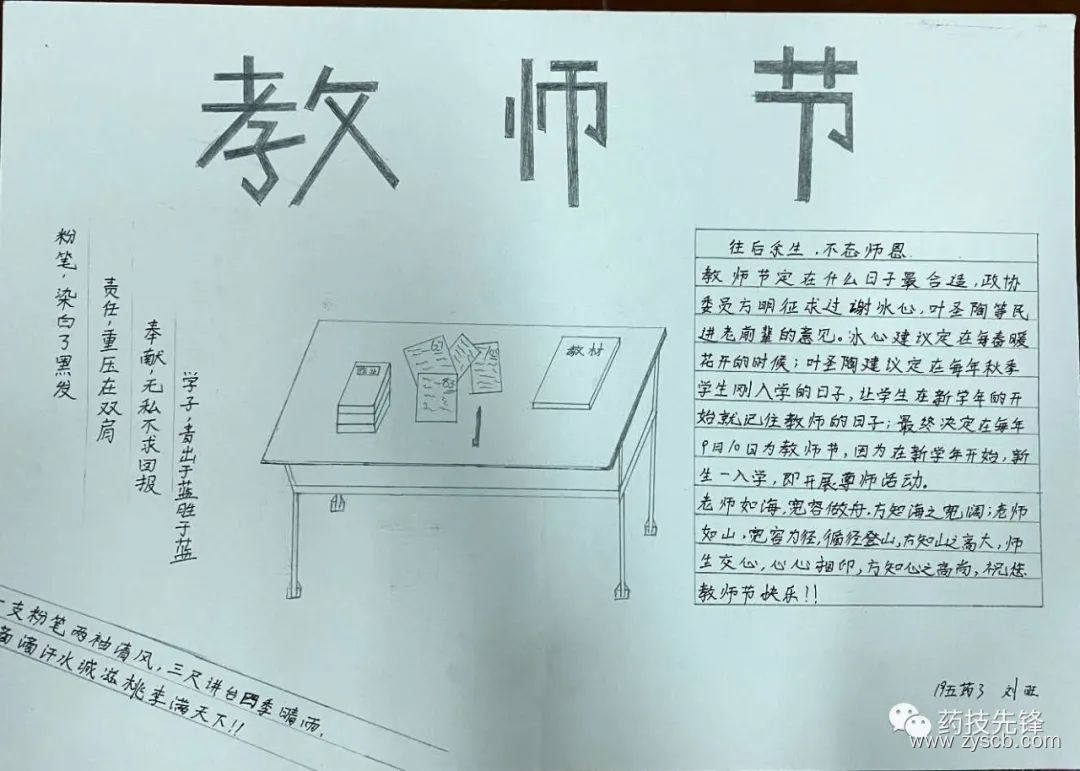 教师节
粉笔，染白了黑发
责任，重压在双肩
奉献，无私不求回报
学子，青出于蓝胜于蓝
作业
教材
往后余生，不忘师恩
教师节定在什么日子最合适，政协
委员方明征求过谢冰心，叶圣陶等民
进老前辈的意见。冰心建议定在每春暖
花开的时候；叶圣陶建议定在每年秋季
学生刚入学的日子，让学生在新学年的开
始就记住教师的日子；最终决定在每年
9月10日为教师节，因为在新学年开始，新
生一入学，即开展尊师活动。
老师如海，宽容做舟，方知海之宽阔；老师
如山，宽容为径，循径登山，方知山之高大，师
生交心，心心相印，方知心之高尚，祝您
教师节快乐！！
一支粉笔两袖清风，三尺讲台四季晴雨，
滴汗水诚滋桃李满天下！！
刘旺
药技先锋
www.zyscb.com